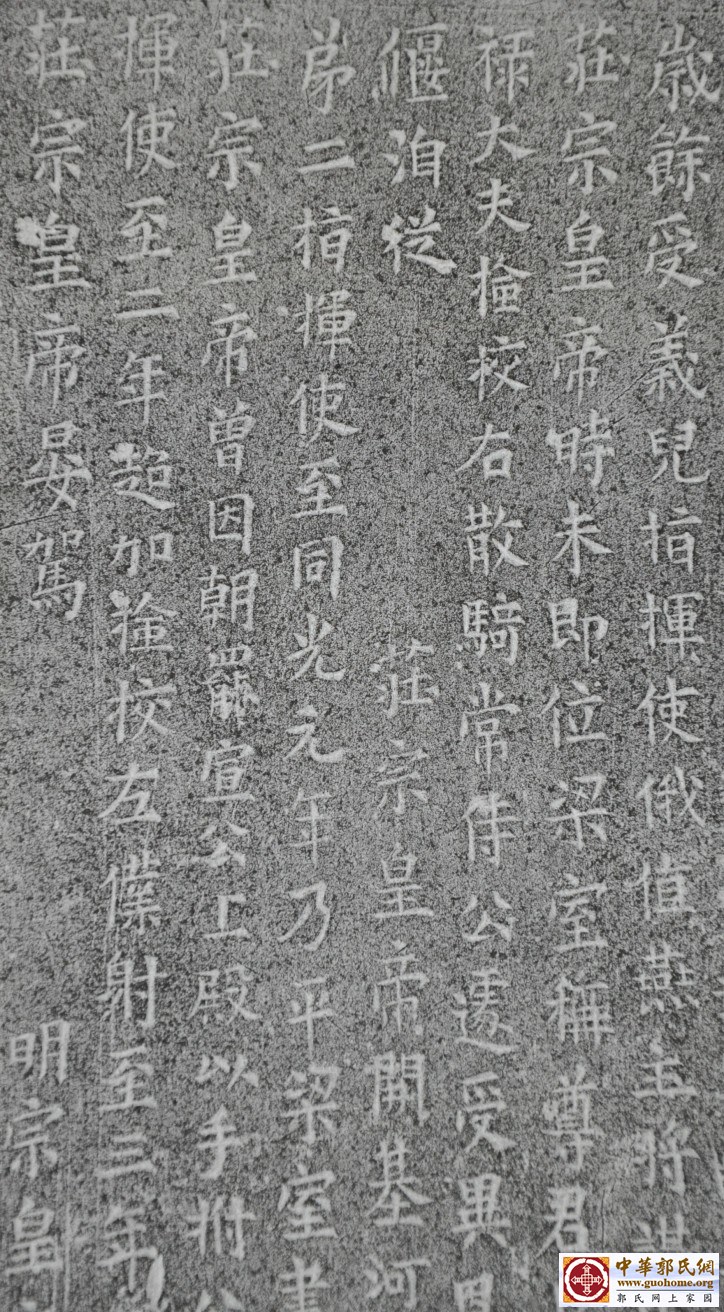 歲餘受義兒指揮使俄值燕主將謀
莊宗皇帝時未即位梁室稱尊君
祿大夫撿挍右散騎常侍公遽受異恩
偃洎從 莊宗皇帝開基河
弟二指揮使至同光元年乃平梁室
莊宗皇帝曾因朝罷宣公上殿以手附公
揮使至二年超加撿挍左僕射至三年
莊宗皇帝晏駕 明宗皇
中華郭氏網
www.guohome.org
郭氏网上家园